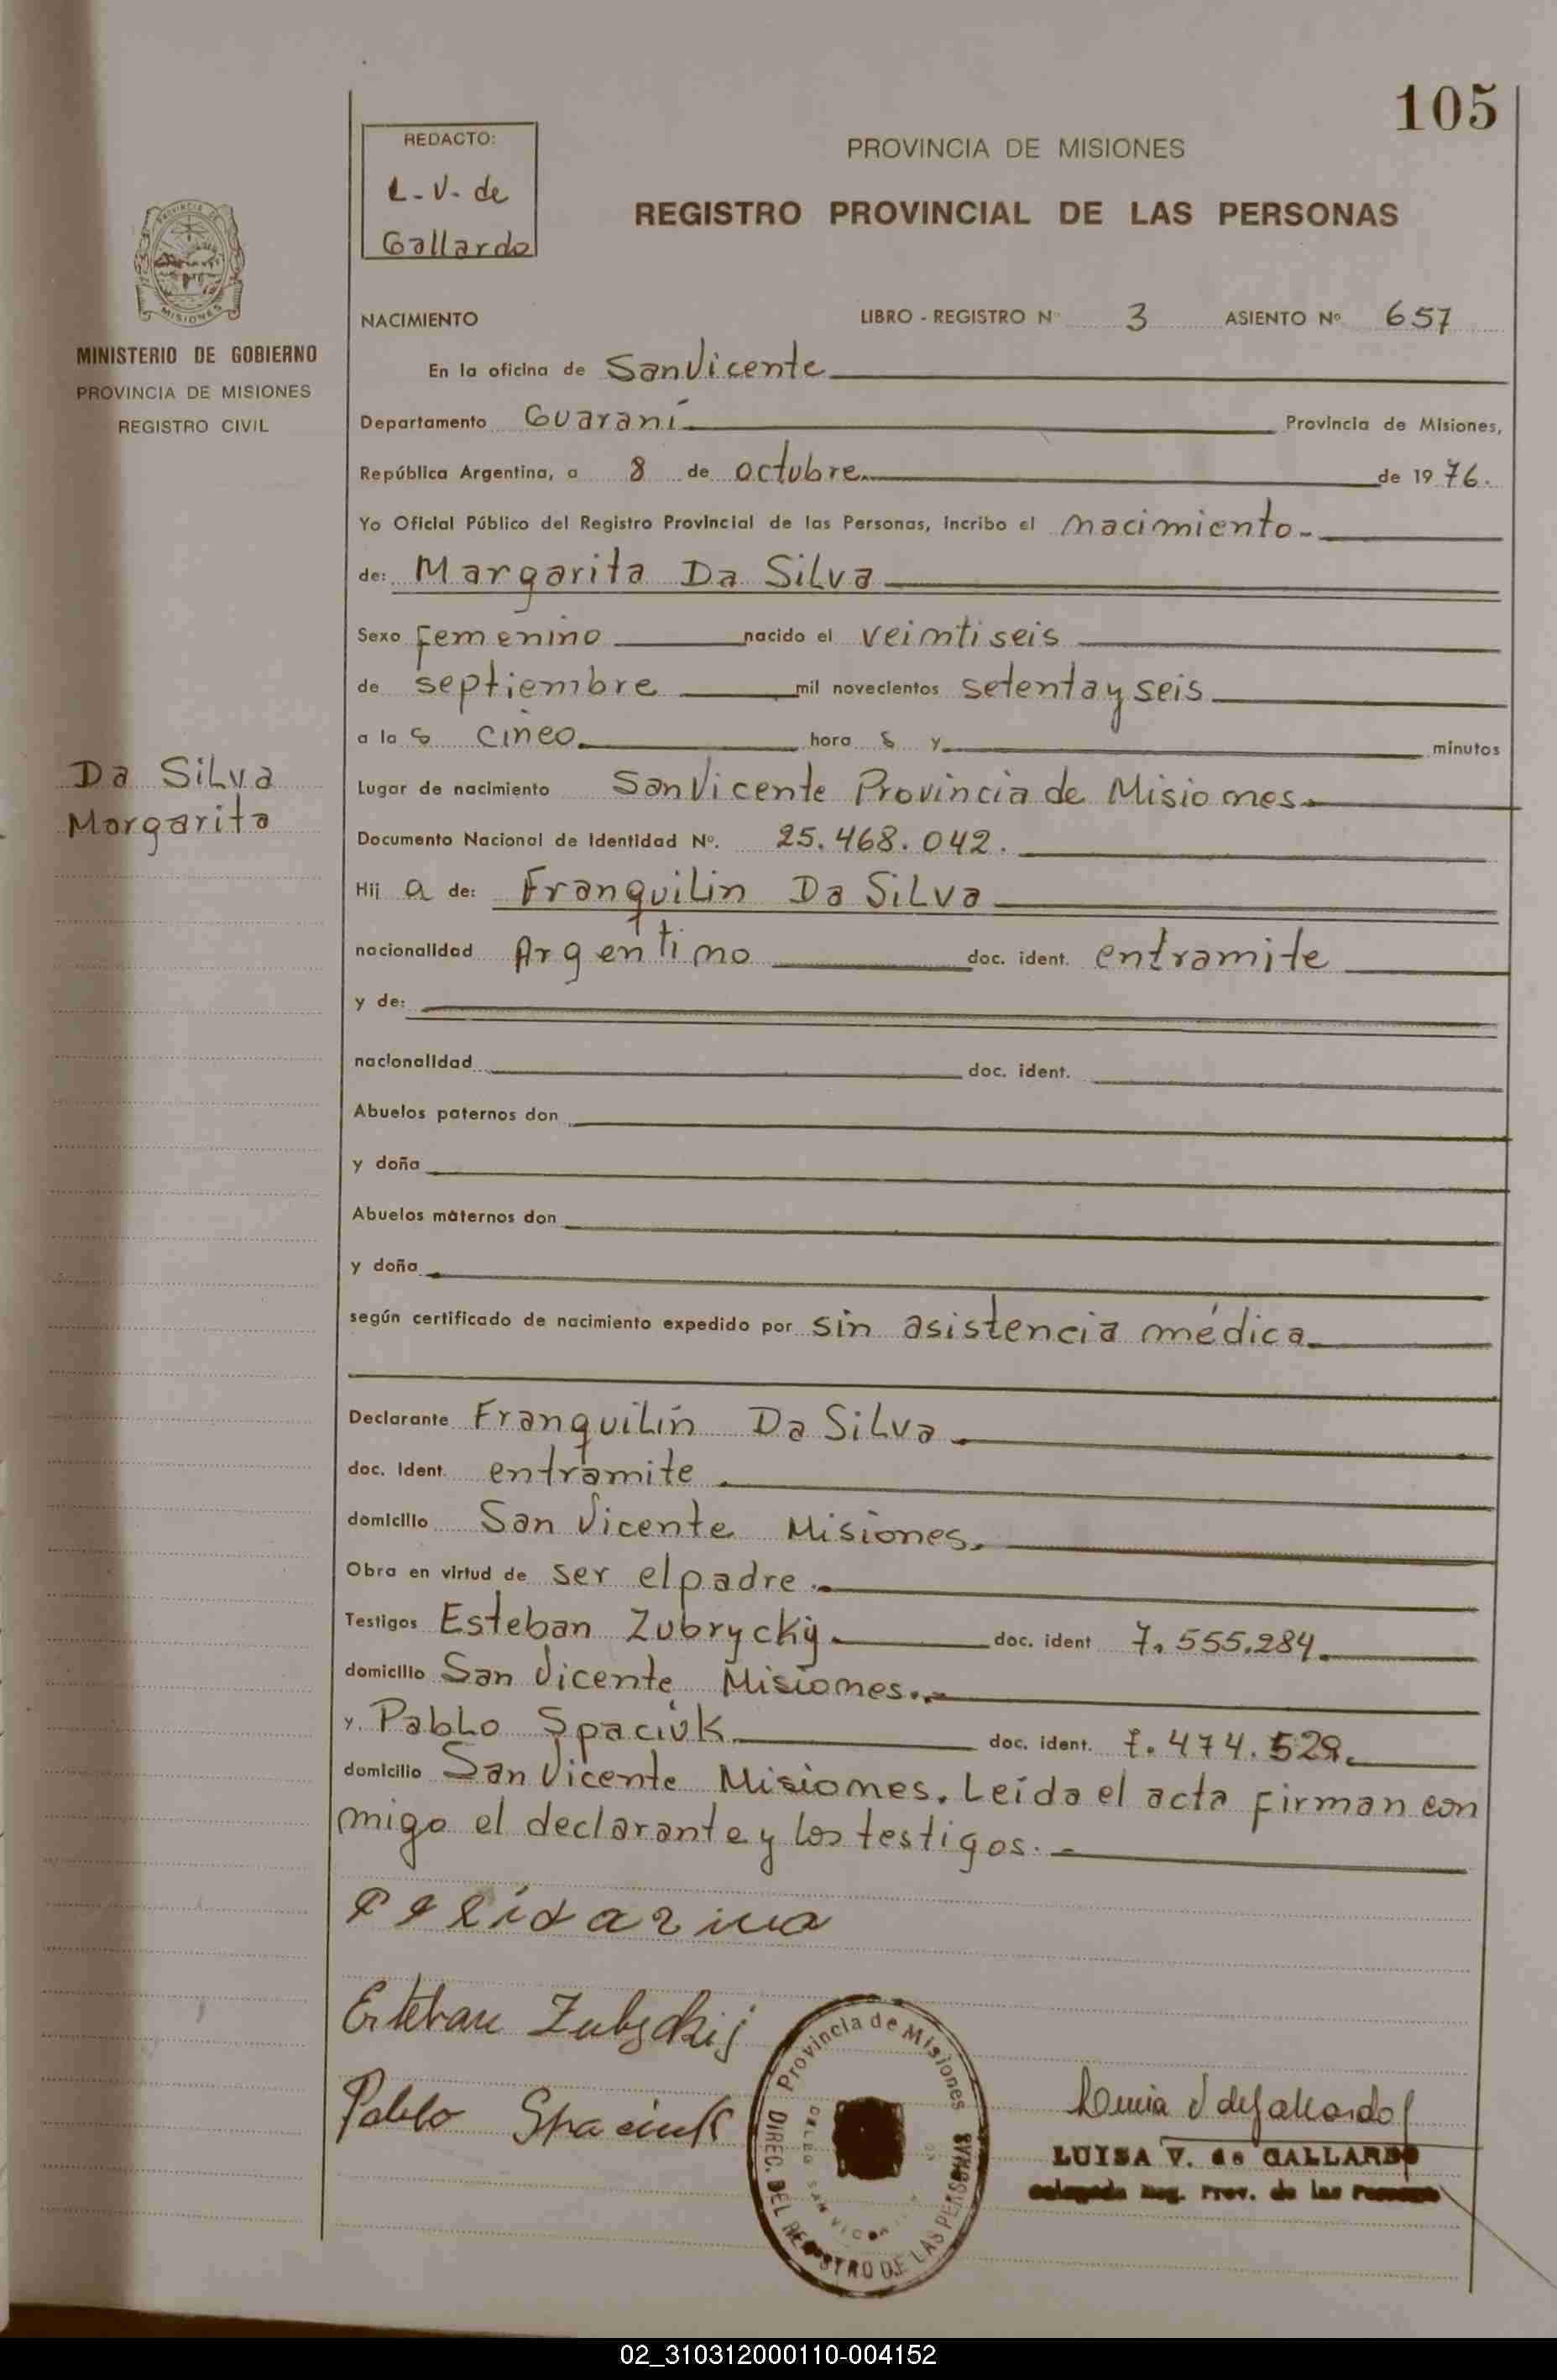 105
REDACTO:
L.V. de
Gallardo
PROVINCIA DE MISIONES
REGISTRO PROVINCIAL DE LAS PERSONAS
PROVINCIA DE
MISIONES
MINISTERIO DE GOBIERNO
PROVINCIA DE MISIONES
REGISTRO CIVIL
NACIMIENTO LIBRO - REGISTRO Nº 3 ASIENTO Nº 657
En la oficina de San Vicente
Departamento Guaraní Provincia de Misiones,
República Argentina, a 8 de octubre de 1976.
Yo Oficial Público del Registro Provincial de las Personas, incribo el nacimiento.
de: Margarita Da Silva
Sexo Femenino nacido el veintiseis
de septiembre mil novecientos setenta y seis
a la s cinco hora s y minutos
Da Silva
Margarita
Lugar de nacimiento San Vicente Provincia de Misiones.
Documento Nacional de Identidad Nº. 25.468.042.
Hij a de: Franquilin Da Silva
nacionalidad Argentino doc. ident. entramite
y de:
nacionalidad doc. ident.
Abuelos paternos don
y doña
Abuelos maternos don
y doña
según certificado de nacimiento expedido por sin asistencia médica
Declarante Franquilín Da Silva
doc. Ident. entramite
domicilio San Vicente Misiones.
Obra en virtud de ser el padre.
Testigos Esteban Zubrycky doc. ident 7.555.284.
domicilio San Vicente Misiones.
y Pablo Spaciuk doc. ident. 7.474.529.
domicilio San Vicente Misiones. Leída el acta firman con
migo el declarante y los testigos.
Esteban
Pablo Spaciuk
Provincia de Misiones
DIREC. DEL REGISTRO DE LAS PERSONAS
LUISA V. de GALLARDO
Delegada Reg. Prov. de las Personas
02_310312000110-004152